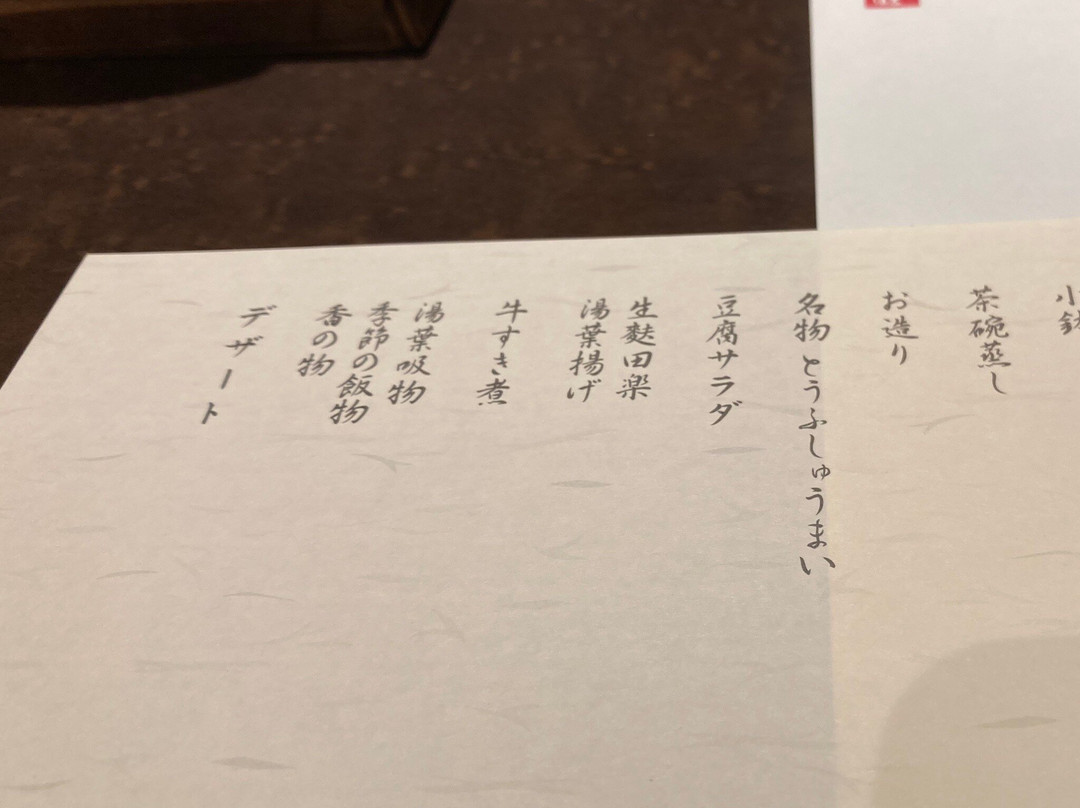 小鉢
茶碗蒸し
お造り
名物 とうふしゅうまい
豆腐サラダ
生麩田楽
湯葉揚げ
牛すき煮
湯葉吸物
季節の飯物
香の物
デザート